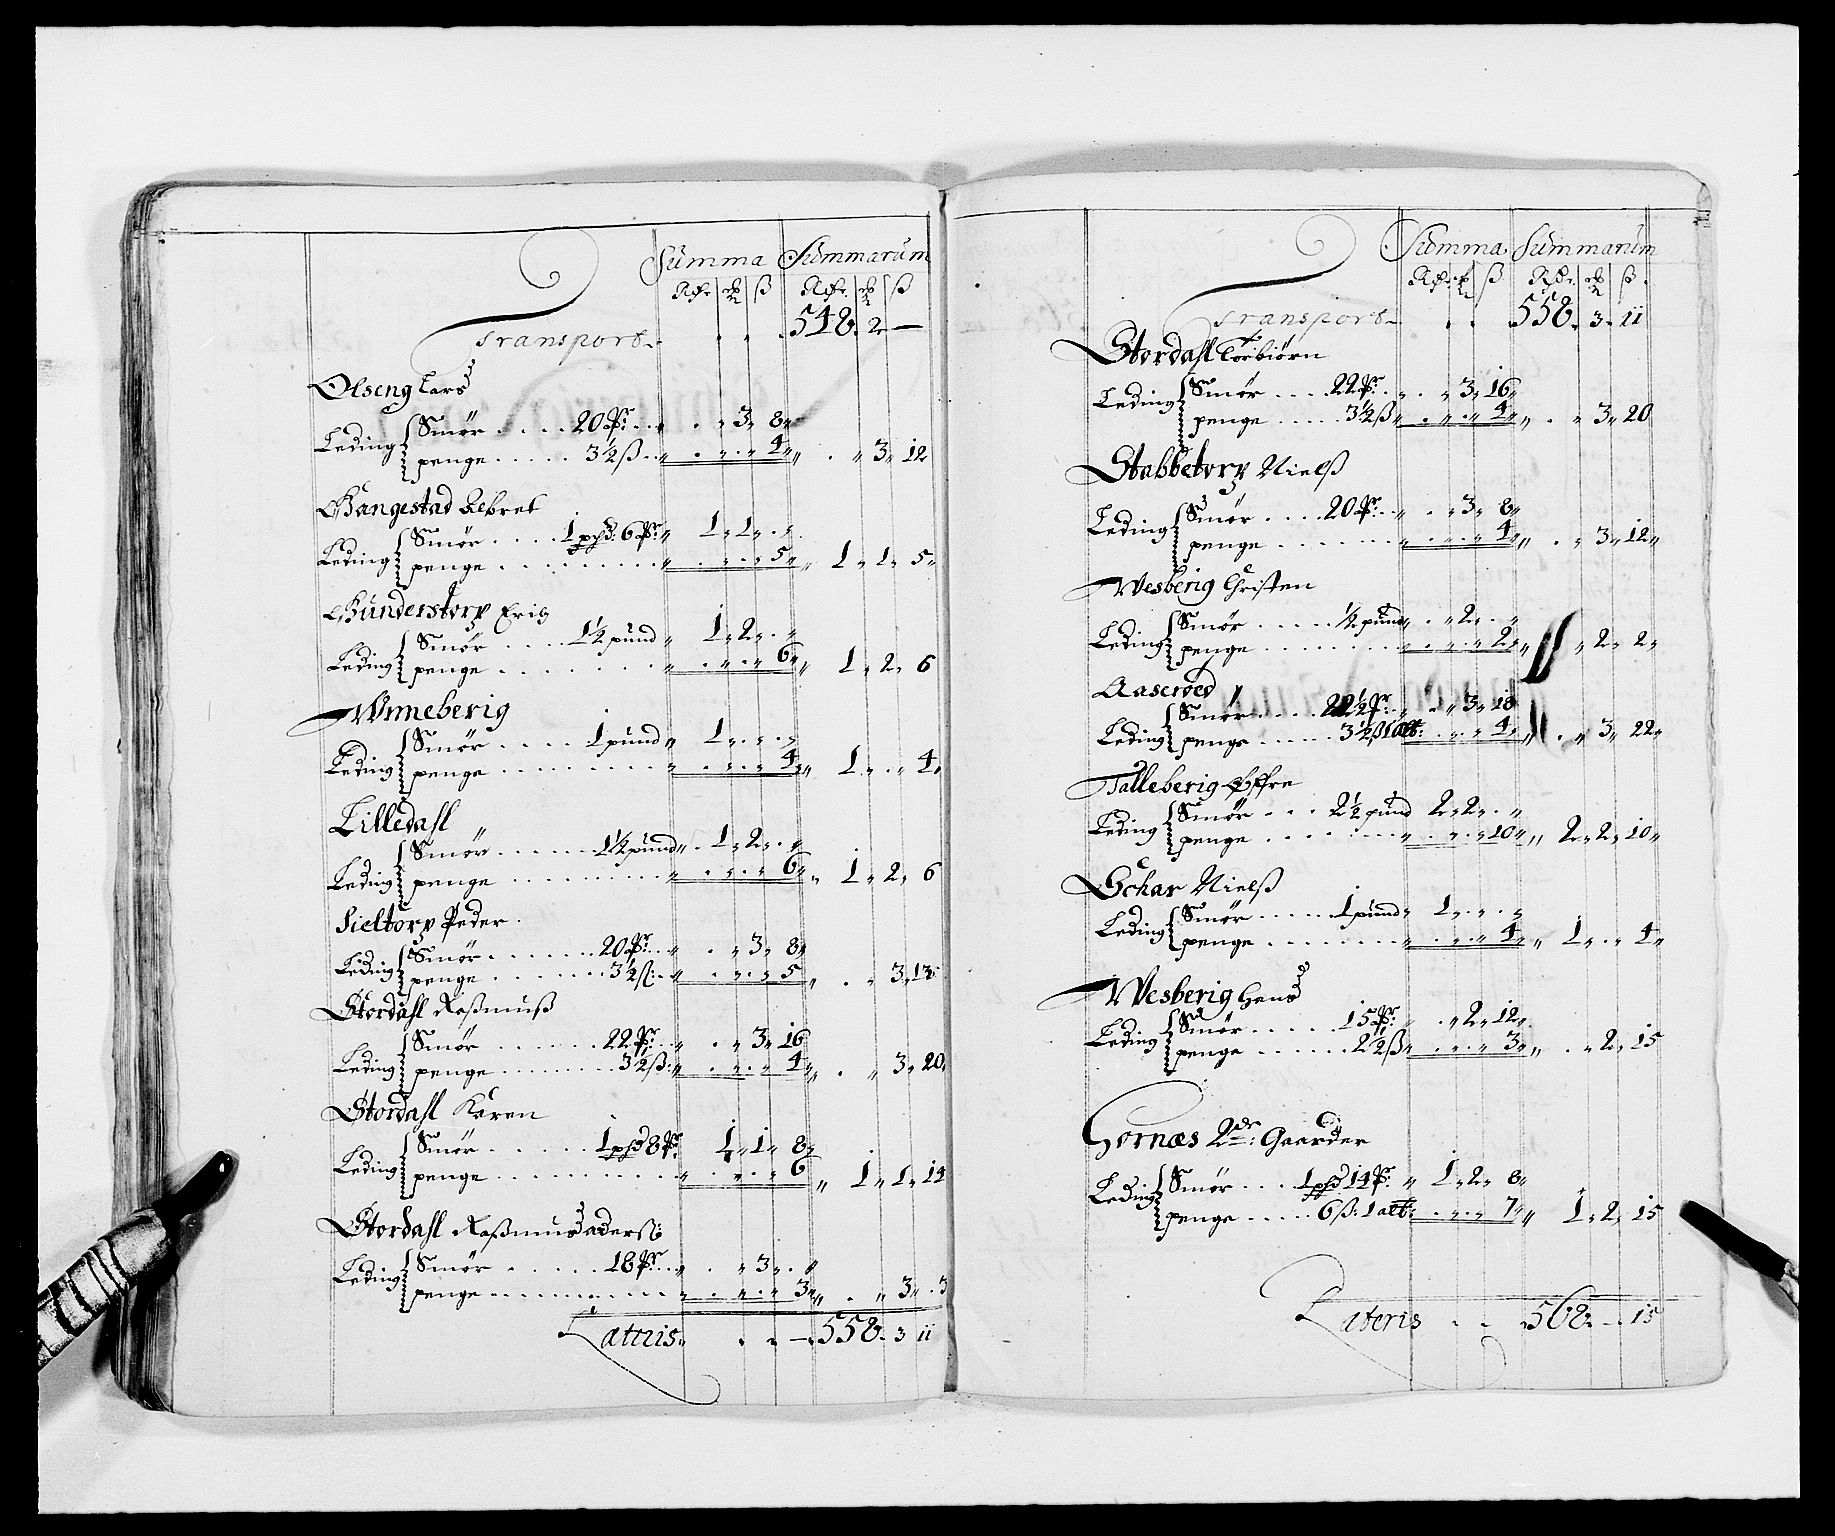 Summa Summarum
Rdr ort ß Rdr ort ß
Transport . . 548 2 —
Olseng Lars
Leding Smør .... 20 Pr: . . 3 8
penge ..... 3½ ß . . 4 . 3 12
Bangestad Asbret
Leding Smør .... 1 phd: 6 Pr: 1 1 .
penge ......... . . 5 1 1 5
Gunderstorp Erig
Leding Smør .... 1½ pund 1 2 .
penge ........ . . 6 1 2 6
Wnneberig
Leding Smør .... 1 pund 1 . .
penge ......... . . 4 1 . 4
Lilledahl
Leding Smør ...... 1½ pund 1 2 .
penge ......... . . 6 1 2 6
Sieltorp Peder
Leding Smør ...... 20 Pr: . 3 8
penge ....... 3½ ß: . . 5 . 3 13
Stordahl Rasmuß
Leding Smør ...... 22 Pr: . 3 16
penge ........ 3½ ß: . . 4 . 3 20
Stordahl Karen
Leding Smør ...... 1 phd 8 Pr: 1 1 8
penge .......... . . 6 1 1 14
Stordahl Raßmus aders:
Leding Smør ..... 18 Pr: . 3 .
penge .......... . . 3 . 3 3
Lateris . . — 558 3 11
Summa Summarum
Rdr ort ß Rdr ort ß
Transport . . 558 3 11
Stordahl Torbiørn
Leding Smør .... 22 Pr: . 3 16
penge ..... 3½ ß . . 4 . 3 20
Stabbetorp Nielß
Leding Smør .... 20 Pr: . 3 8
penge ....... . . 4 . 3 12
Wesberig Christen
Leding Smør ..... ½ pund . 2 .
penge ......... . . 2 . 2 2
Aaseroed
Leding Smør ..... 22½ Pr: . 3 18
penge ..... 3½ ß 1 alt: . . 4 . 3 22
Talleberig Offre
Leding Smør ... 2½ pund 2 2 .
penge ........ . . 10 2 2 10
Schar Nielß
Leding Smør ..... 1 pund 1 . .
penge ........ . . 4 1 . 4
Wesberig Hans
Leding Smør ..... 15 Pr: . 2 12
penge ...... 2½ ß . . 3 . 2 15
Hornæs 2de: Gaarder
Leding Smør ... 1 phd 14 Pr: 1 2 8
penge ..... 6 ß: 1 alt: . . 7 1 2 15
Lateris . . 568 — 15